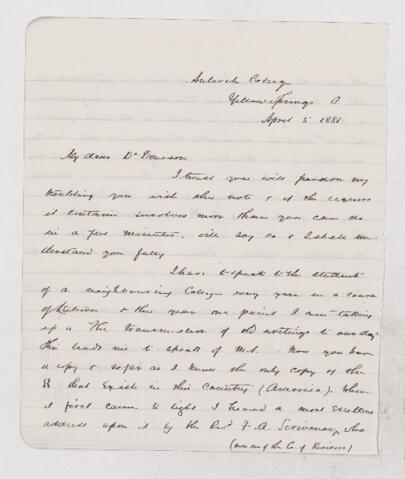 Antioch College
Yellow Springs O
April 5 1881
My dear Dr Dawson
I trust you will pardon my
troubling you with this note & if the request
it contains involves more than you can do
in a few minutes, will say so & I shall un-
derstand you fully.
I have to speak to the students
of a neighbouring College every year in a course
of Lectures & this year one point I am taking
up is the transmission of old writings to our day
This leads me to speak of M.S. Now you have
a copy & so far as I know the only copy of the
that exists in this country (America). When
it first came to light I heard a most excellent
address upon it by the Revd F. A. Scrivener, who
(was one of the Co. of Revisers)